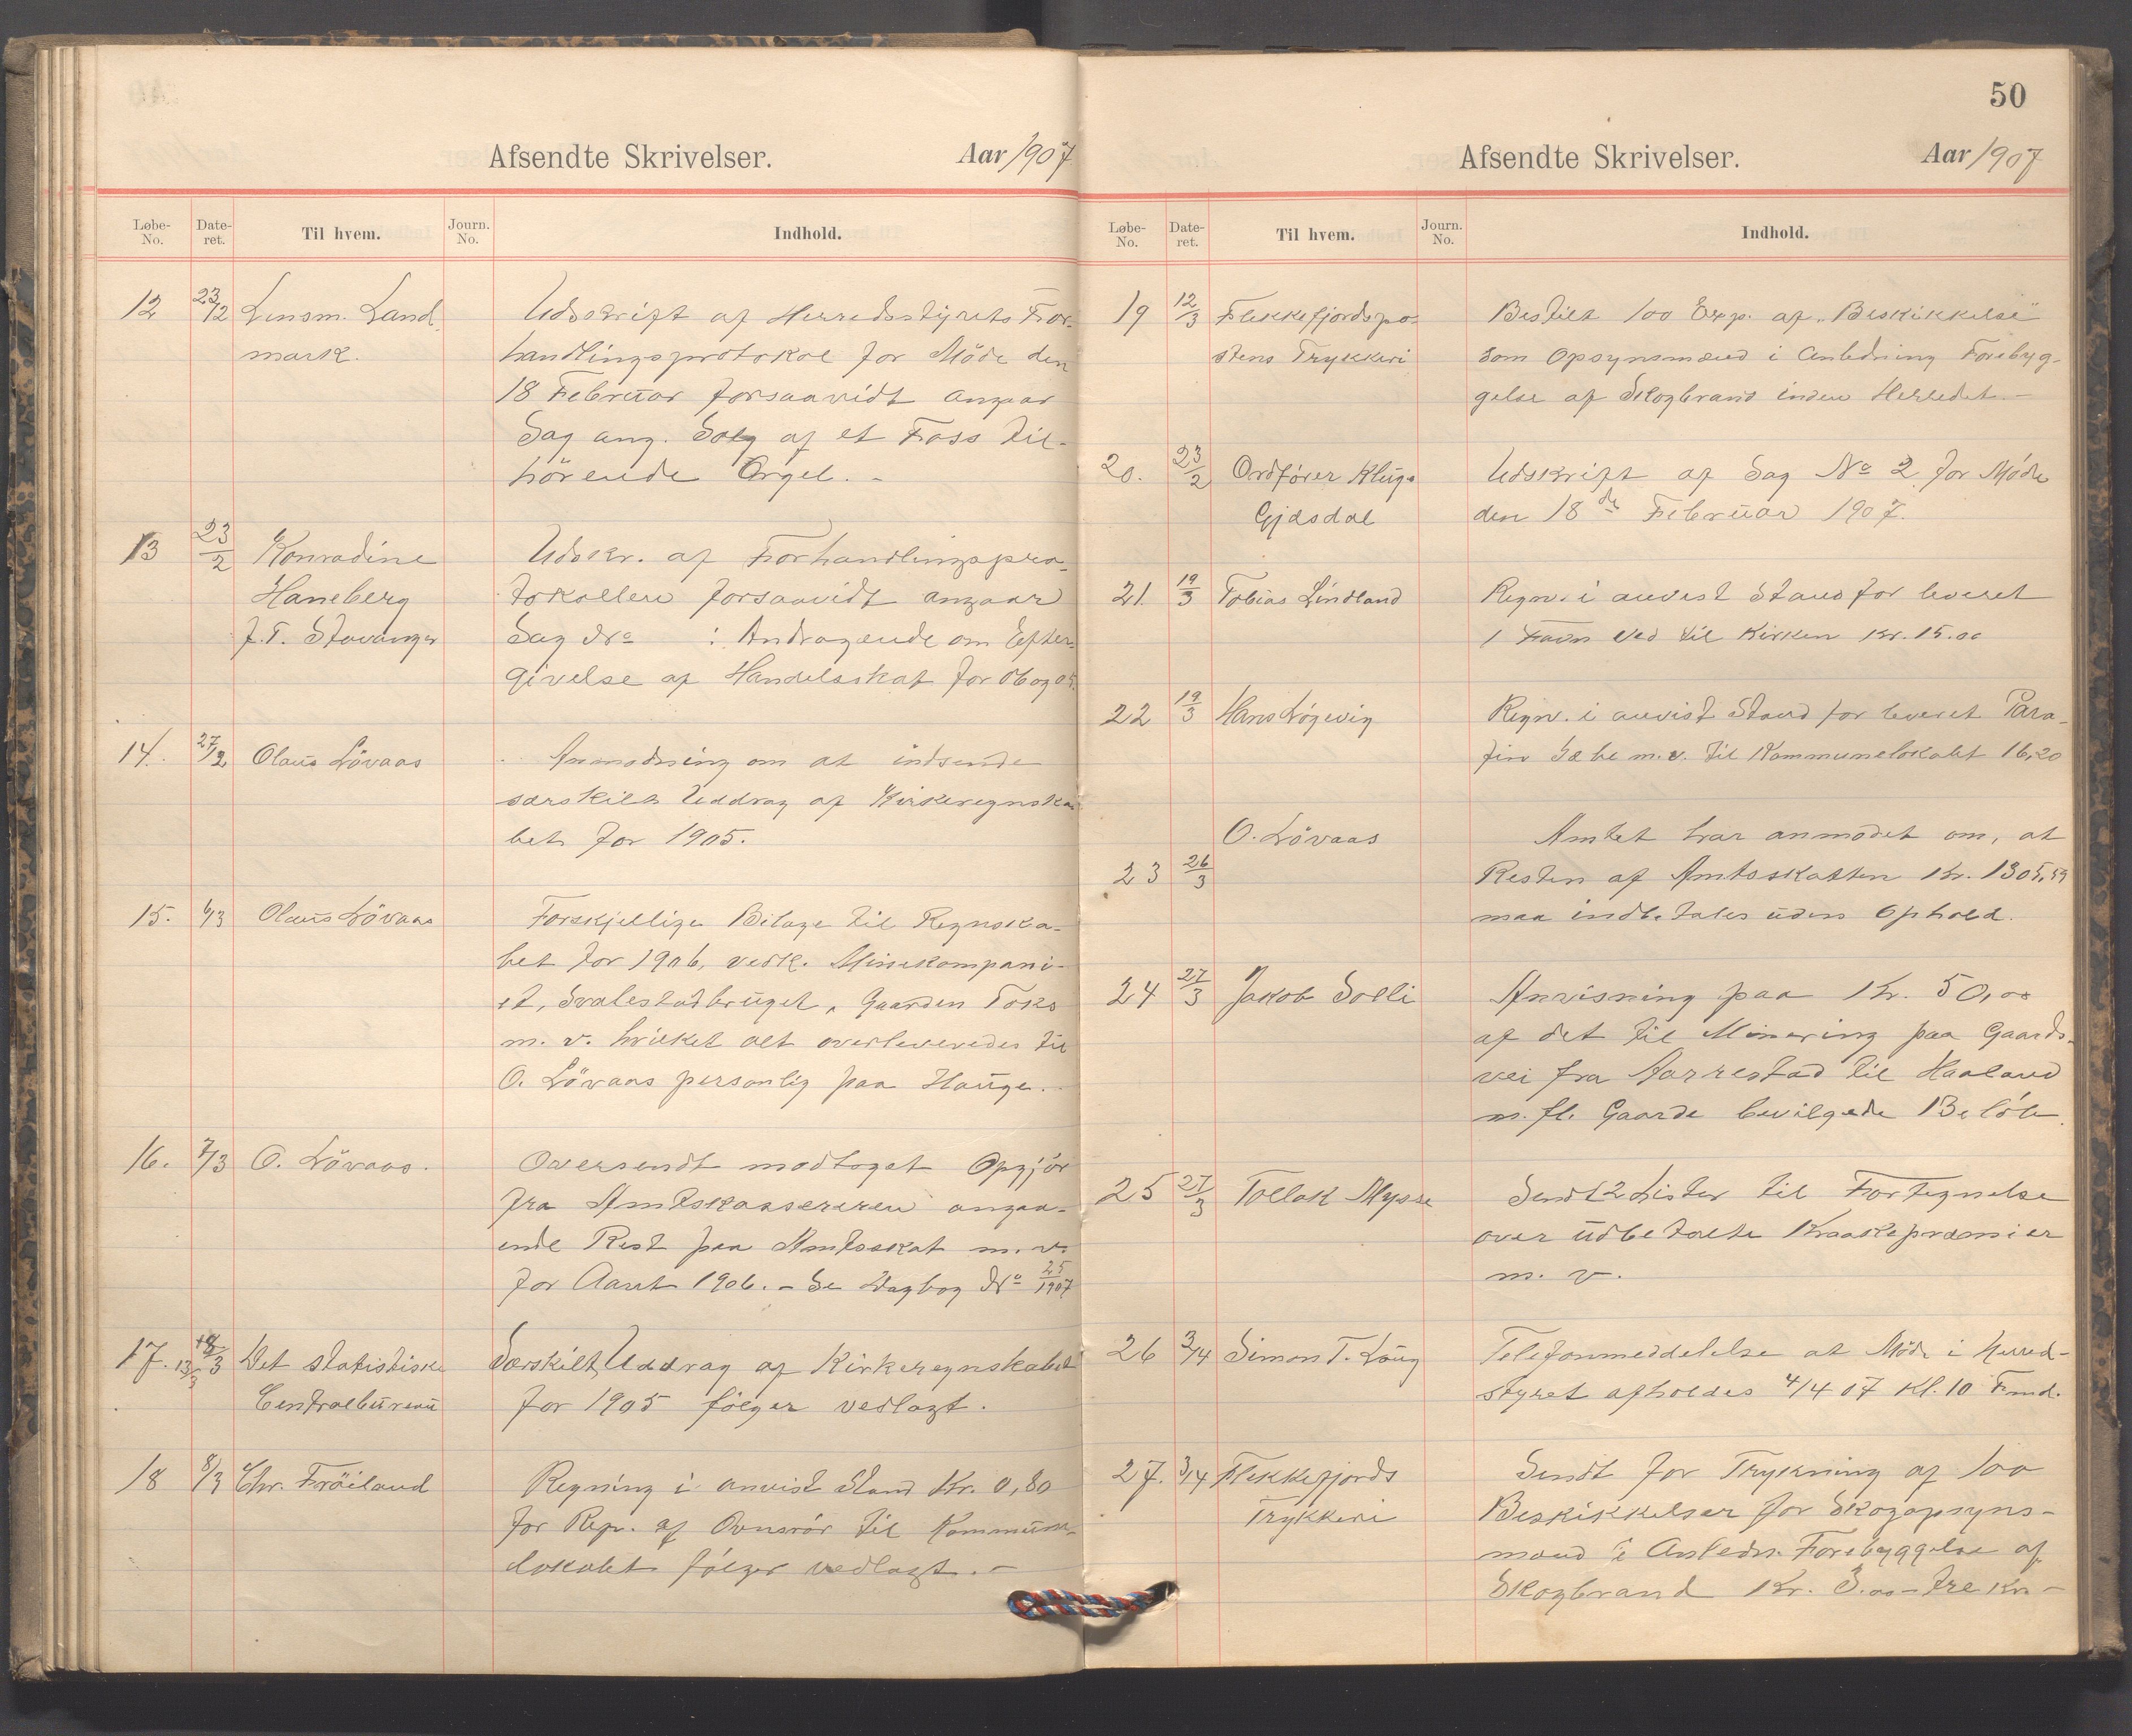 Afsendte Skrivelser. Aar 1907
Løbe-No. Date-ret. Til hvem. Journ. No. Indhold.
12 23/2 Lensm. Land- Udskrift af Herredsstyrets For-
mark. handlingsprotokol for Möde den
18 Februar forsaavidt angaar
Sag ang. Salg af et Foss til-
hörende Orgel. -
13 23/2 Konradine Udskr. af Forhandlingspro-
Haneberg tokollen forsaavidt angaar
J.T. Stavanger Sag No : Andragende om Efter-
givelse af Handelsskat for 06 og 05.
14. 27/2 Olaus Lövaas Anmodning om at indsende
særskilt Uddrag af Kirkeregnska
bet for 1905.
15. 6/3 Olaus Lövaas Forskjellige Bilage til Regnska-
bet for 1906, vedk. Minekompani-
et, Svalestadbruget, Gaarden Foks
m. v. hvilket alt overleveredes til
O. Lövaas personlig paa Hauge.
16. 7/3 O. Lövaas. Oversendt modtaget Opgjör
fra Amtskassereren angaa-
ende Rest paa Amtsskat m. v.
for Aaret 1906. - Se Dagbog No 25/1907
17. 13/3 Det statistiske Særskilt Uddrag af Kirkeregnskabet
Centralbureau for 1905 fölger vedlagt.
18 8/3 Chr. Fröiland Regning i anvist Stand Kr. 0,80
for Rep. af Ovnsrör til Kommune-
lokalet fölger vedlagt. -
50
Afsendte Skrivelser. Aar 1907
Løbe-No. Date-ret. Til hvem. Journ. No. Indhold.
19 12/3 Flekkefjordspo- Bestilt 100 Exp. af "Beskikkelse"
stens Trykkeri som Opsynsmænd i Anledning Forebyg-
gelse af Skogbrand inden Herredet. -
20. 23/2 Ordförer Kluge Udskrift af Sag No 2 for Möde
Gjedsdal den 18de Februar 1907.
21. 19/3 Tobias Lindland Regn. i anvist Stand for leveret
1 Favn Ved til Kirken Kr. 15.00
22 19/3 Hans Lögevig Regn. i anvist Stand for leveret Para-
fin Sæbe m.v. til Kommunelokalet 16,20
O. Lövaas Amtet har anmodet om, at
23 26/3 Resten af Amtsskatten Kr. 1305,59
maa indbetales uden Ophold.
24 27/3 Jakob Solli Anvisning paa Kr. 50,00
af det til Minering paa Gaards-
vei fra Aarrestad til Haaland
m. fl. Gaarde bevilgede Belöb.
25 27/3 Tollak Mysse Sendt 2 Lister til Fortegnelse
over udbetalte Kraakepræmier
m. v.
26 3/4 Simon T. Laug Telefonmeddelelse at Möde i Herred-
styret afholdes 4/4 07 Kl. 10 Fmd.
27. 3/4 Flekkefjords Sendt for Trykning af 100
Trykkeri Beskikkelser for Skogopsyns-
mænd i Anledn. Forebyggelse af
Skogbrand Kr. 3.00 - tre Kr. -